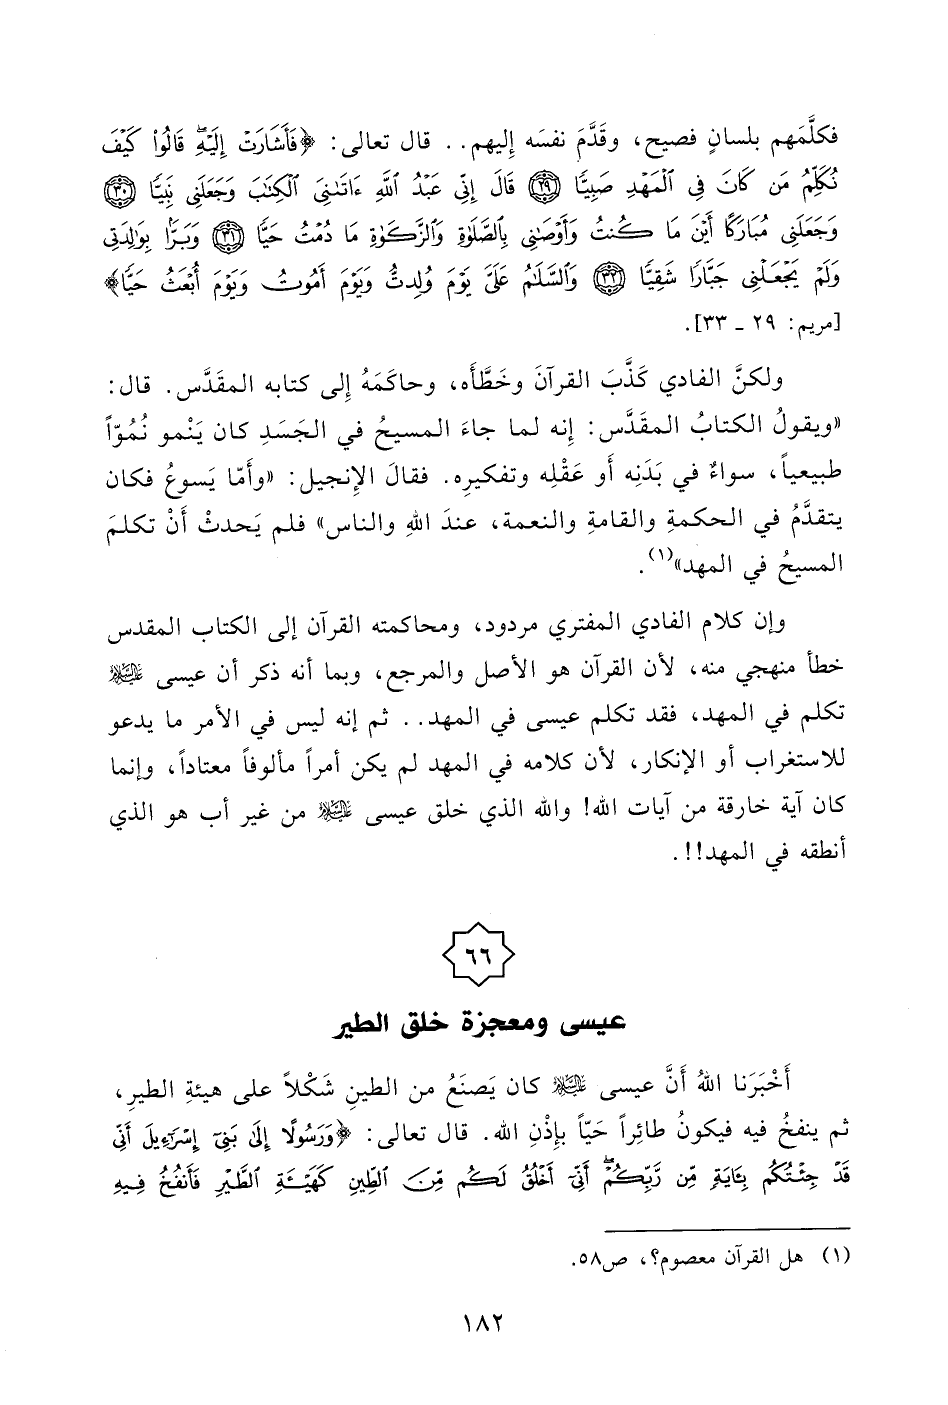 فكلَّمَهم بلسانٍ فصيح، وقَدَّمَ نفسَه إليهم.. قال تعالى: ﴿فَأَشَارَتْ إِلَيْهِ ۖ قَالُوا۟ كَيْفَ
نُكَلِّمُ مَن كَانَ فِى ٱلْمَهْدِ صَبِيًّا ﴿٢٩﴾ قَالَ إِنِّى عَبْدُ ٱللَّهِ ءَاتَىٰنِىَ ٱلْكِتَٰبَ وَجَعَلَنِى نَبِيًّا ﴿٣٠﴾
وَجَعَلَنِى مُبَارَكًا أَيْنَ مَا كُنتُ وَأَوْصَٰنِى بِٱلصَّلَوٰةِ وَٱلزَّكَوٰةِ مَا دُمْتُ حَيًّا ﴿٣١﴾ وَبَرًّۢا بِوَٰلِدَتِى
وَلَمْ يَجْعَلْنِى جَبَّارًا شَقِيًّا ﴿٣٢﴾ وَٱلسَّلَٰمُ عَلَىَّ يَوْمَ وُلِدتُّ وَيَوْمَ أَمُوتُ وَيَوْمَ أُبْعَثُ حَيًّا﴾
[مريم: ٢٩ - ٣٣].
ولكنَّ الفادي كَذَّبَ القرآنَ وخَطَّأَه، وحاكَمَهُ إلى كتابه المقَدَّس. قال:
«ويقولُ الكتابُ المقَدَّس: إنه لما جاءَ المسيحُ في الجَسَدِ كان يَنْمو نُمُوّاً
طبيعياً، سواءٌ في بَدَنِه أو عَقْلِه وتفكيرِه. فقالَ الإنجيل: «وأَمّا يَسوعُ فكان
يتقدَّمُ في الحكمةِ والقامةِ والنعمة، عندَ اللهِ والناس» فلم يَحدثْ أنْ تكلمَ
المسيحُ في المهد»(١).
وإن كلام الفادي المفتري مردود، ومحاكمته القرآن إلى الكتاب المقدس
خطأ منهجي منه، لأن القرآن هو الأصل والمرجع، وبما أنه ذكر أن عيسى عليه السلام
تكلم في المهد، فقد تكلم عيسى في المهد.. ثم إنه ليس في الأمر ما يدعو
للاستغراب أو الإنكار، لأن كلامه في المهد لم يكن أمراً مألوفاً معتاداً، وإنما
كان آية خارقة من آيات الله! والله الذي خلق عيسى عليه السلام من غير أب هو الذي
أنطقه في المهد!!.
٦٦
عيسى ومعجزة خلق الطير
أَخْبَرَنا اللهُ أنَّ عيسى عليه السلام كان يَصنَعُ من الطينِ شَكْلاً على هيئةِ الطيرِ،
ثم ينفخُ فيه فيكونُ طائِراً حَيّاً بإِذْنِ الله. قال تعالى: ﴿وَرَسُولًا إِلَىٰ بَنِىٓ إِسْرَٰٓءِيلَ أَنِّى
قَدْ جِئْتُكُم بِـَٔايَةٍ مِّن رَّبِّكُمْ ۖ أَنِّىٓ أَخْلُقُ لَكُم مِّنَ ٱلطِّينِ كَهَيْـَٔةِ ٱلطَّيْرِ فَأَنفُخُ فِيهِ
(١) هل القرآن معصوم؟، ص٥٨.
١٨٢